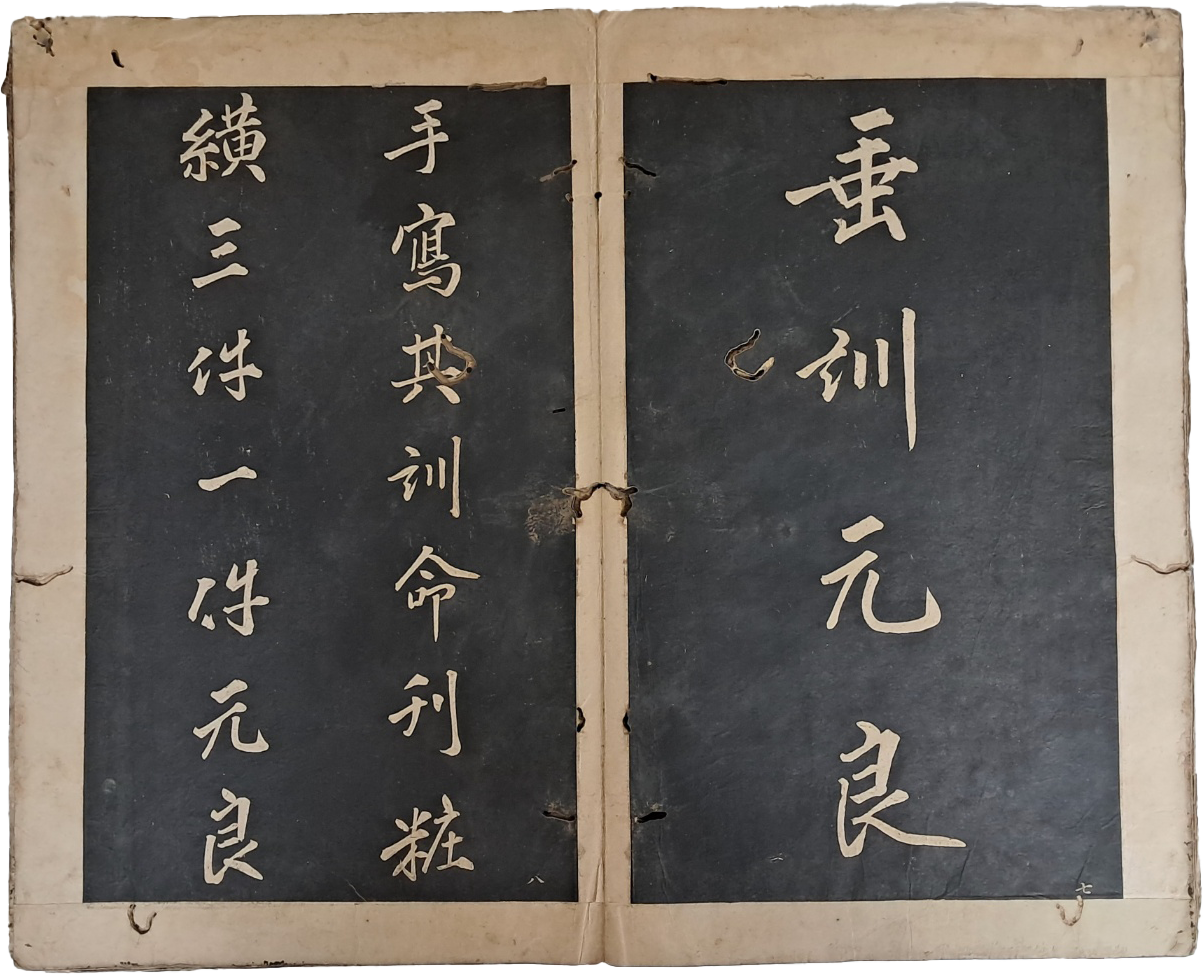 垂訓元良
七
手寫其訓命刊粧
䌙三件一件元良
八